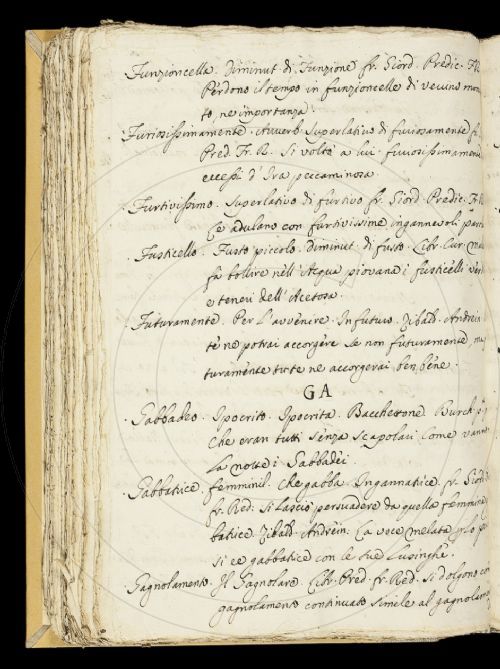 Funzioncella. Diminut. di Funzione fr. Giord. Predic. F.R.
Perdono il tempo in funzioncelle di veruno momen
to, ne importanza.
Furiosissimamente. Avverb. Superlativo di furiosamente fr.
Pred. Fr. R. Si voltò a lui furiosissimamente
eccessi d'Ira peccaminosa.
Furtivissimo. Superlativo di furtivo fr. Giord. Predic. F.R.
Le adulano con furtivissime ingannevoli
Fusticello. Fusto piccolo. Diminut. di fusto. Libr. Cur.
fa bollire nell'Acqua piovana i fusticelli
e teneri dell'Acetosa.
Futuramente. Per l'avvenire. In futuro. Zibald. Andrein.
te ne potrai accorgere se non futuramente
turamente tu te ne accorgerai ben bene.
GA
Gabbadeo. Ipocrito. Ipocrita. Bacchettone. Burch.
Che eran tutti senza Scapolari Come vanno
La notte i Gabbadei.
Gabbatrice. femminil. Che gabba. Ingannatrice. fr. Giord.
fr. Red. Si lasciò persuadere da quella femmina
batrice. Zibald. Andrein. La voce melata
si ee gabbatrice con le sue Lusinghe.
Gagnolamento. Il Gagnolare. Libr. Pred. fr. Red. Si dolgono con
gagnolamento continuato simile al gagnolam